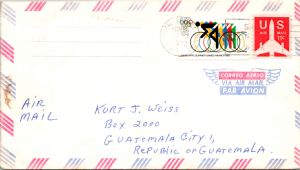 US
11c
CORREO AEREO
VIA AIR MAIL
PAR AVION
AIR
MAIL
KURT J. WEISS
BOX 2000
GUATEMALA CITY 1,
REPUBLIC OF GUATEMALA.